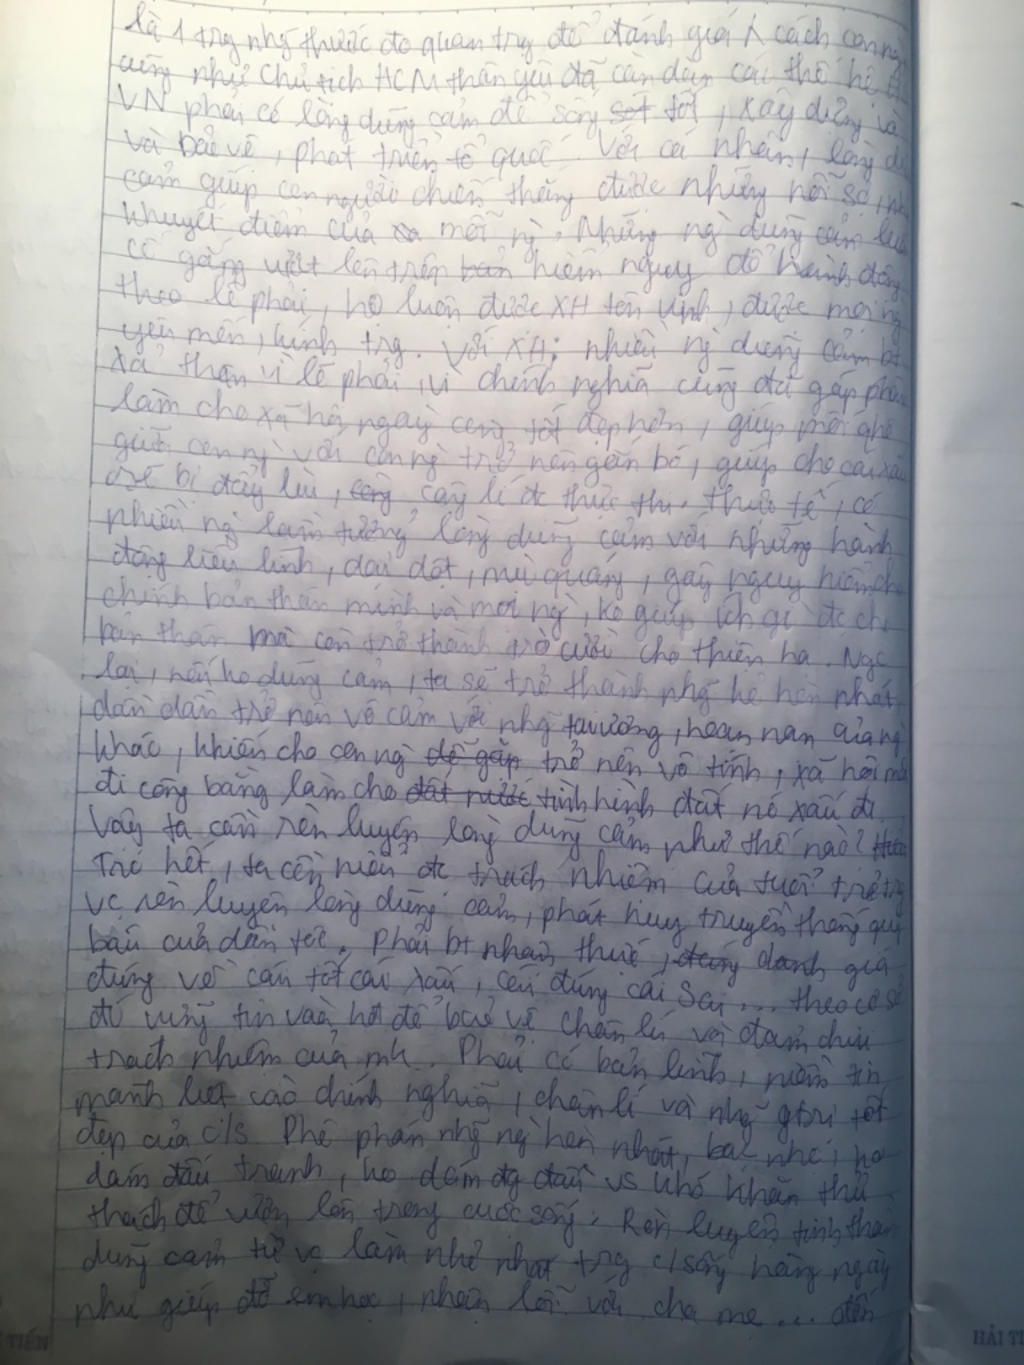 là 1 trg nhg thước đo quan trg để đánh giá n cách con ng
cũng như Chủ tịch HCM thân yêu đã căn dặn các thế hệ
VN phải có lòng dũng cảm để sống sót tốt, xây dựng và
và bảo vệ, phát triển tổ quốc. Với cá nhân, lòng dũ
cảm giúp con người chiến thắng được những nỗi sợ,
khuyết điểm của mỗi ng. Những ng dũng cảm luôn
cố gắng vượt lên trên bản hiểm nguy để hành động
theo lẽ phải, họ luôn được XH tôn vinh, được mọi ng
yêu mến, kính trg. Với XH: nhiều ng dũng cảm bt
xả thân vì lẽ phải, vì chính nghĩa cũng đã góp phần
làm cho xã hội ngày càng tốt đẹp hơn, giúp mối qhệ
giữa con ng với con ng trở nên gắn bó, giúp cho cái xấu
bị đẩy lùi, công công lí đc thực thi. Thực tế, có
nhiều ng lầm tưởng lòng dũng cảm với những hành
động liều lĩnh, dại dột, mù quáng, gây nguy hiểm cho
chính bản thân mình và mọi ng, ko giúp ích gì đc cho
bản thân mà còn trở thành trò cười cho thiên hạ. Ngc
lại, nếu ko dũng cảm, ta sẽ trở thành nhg kẻ hèn nhát,
dần dần trở nên vô cảm với nhg tai ương, hoạn nạn của ng
khác, khiến cho con ng dễ gặp trở nên vô tình, xã hội mất
đi công bằng làm cho đất nước tình hình đất nc xấu đi.
Vậy ta cần rèn luyện lòng dũng cảm như thế nào?
Trc hết, ta cần hiểu đc trách nhiệm của tuổi trẻ trg
vc rèn luyện lòng dũng cảm, phát huy truyền thống quý
báu của dân tộc. Phải bt nhận thức, đúng đánh giá
đúng về cái tốt cái xấu, cái đúng cái sai... theo cơ sở
đó vững tin vào nó để bảo vệ chân lí và dám chịu
trách nhiệm của mk. Phải có bản lĩnh, niềm tin
mãnh liệt vào chính nghĩa, chân lí và nhg gtrị tốt
đẹp của c/s. Phê phán nhg ng hèn nhát, bạc nhược, ko
dám đấu tranh, ko dám đg đầu vs khó khăn thử
thách để vươn lên trong cuộc sống. Rèn luyện tinh thần
dũng cảm từ vc làm nhỏ nhất trg c/sống hàng ngày
như giúp đỡ em học, nhận lỗi với cha mẹ... đến
TIẾN
HẢI TI